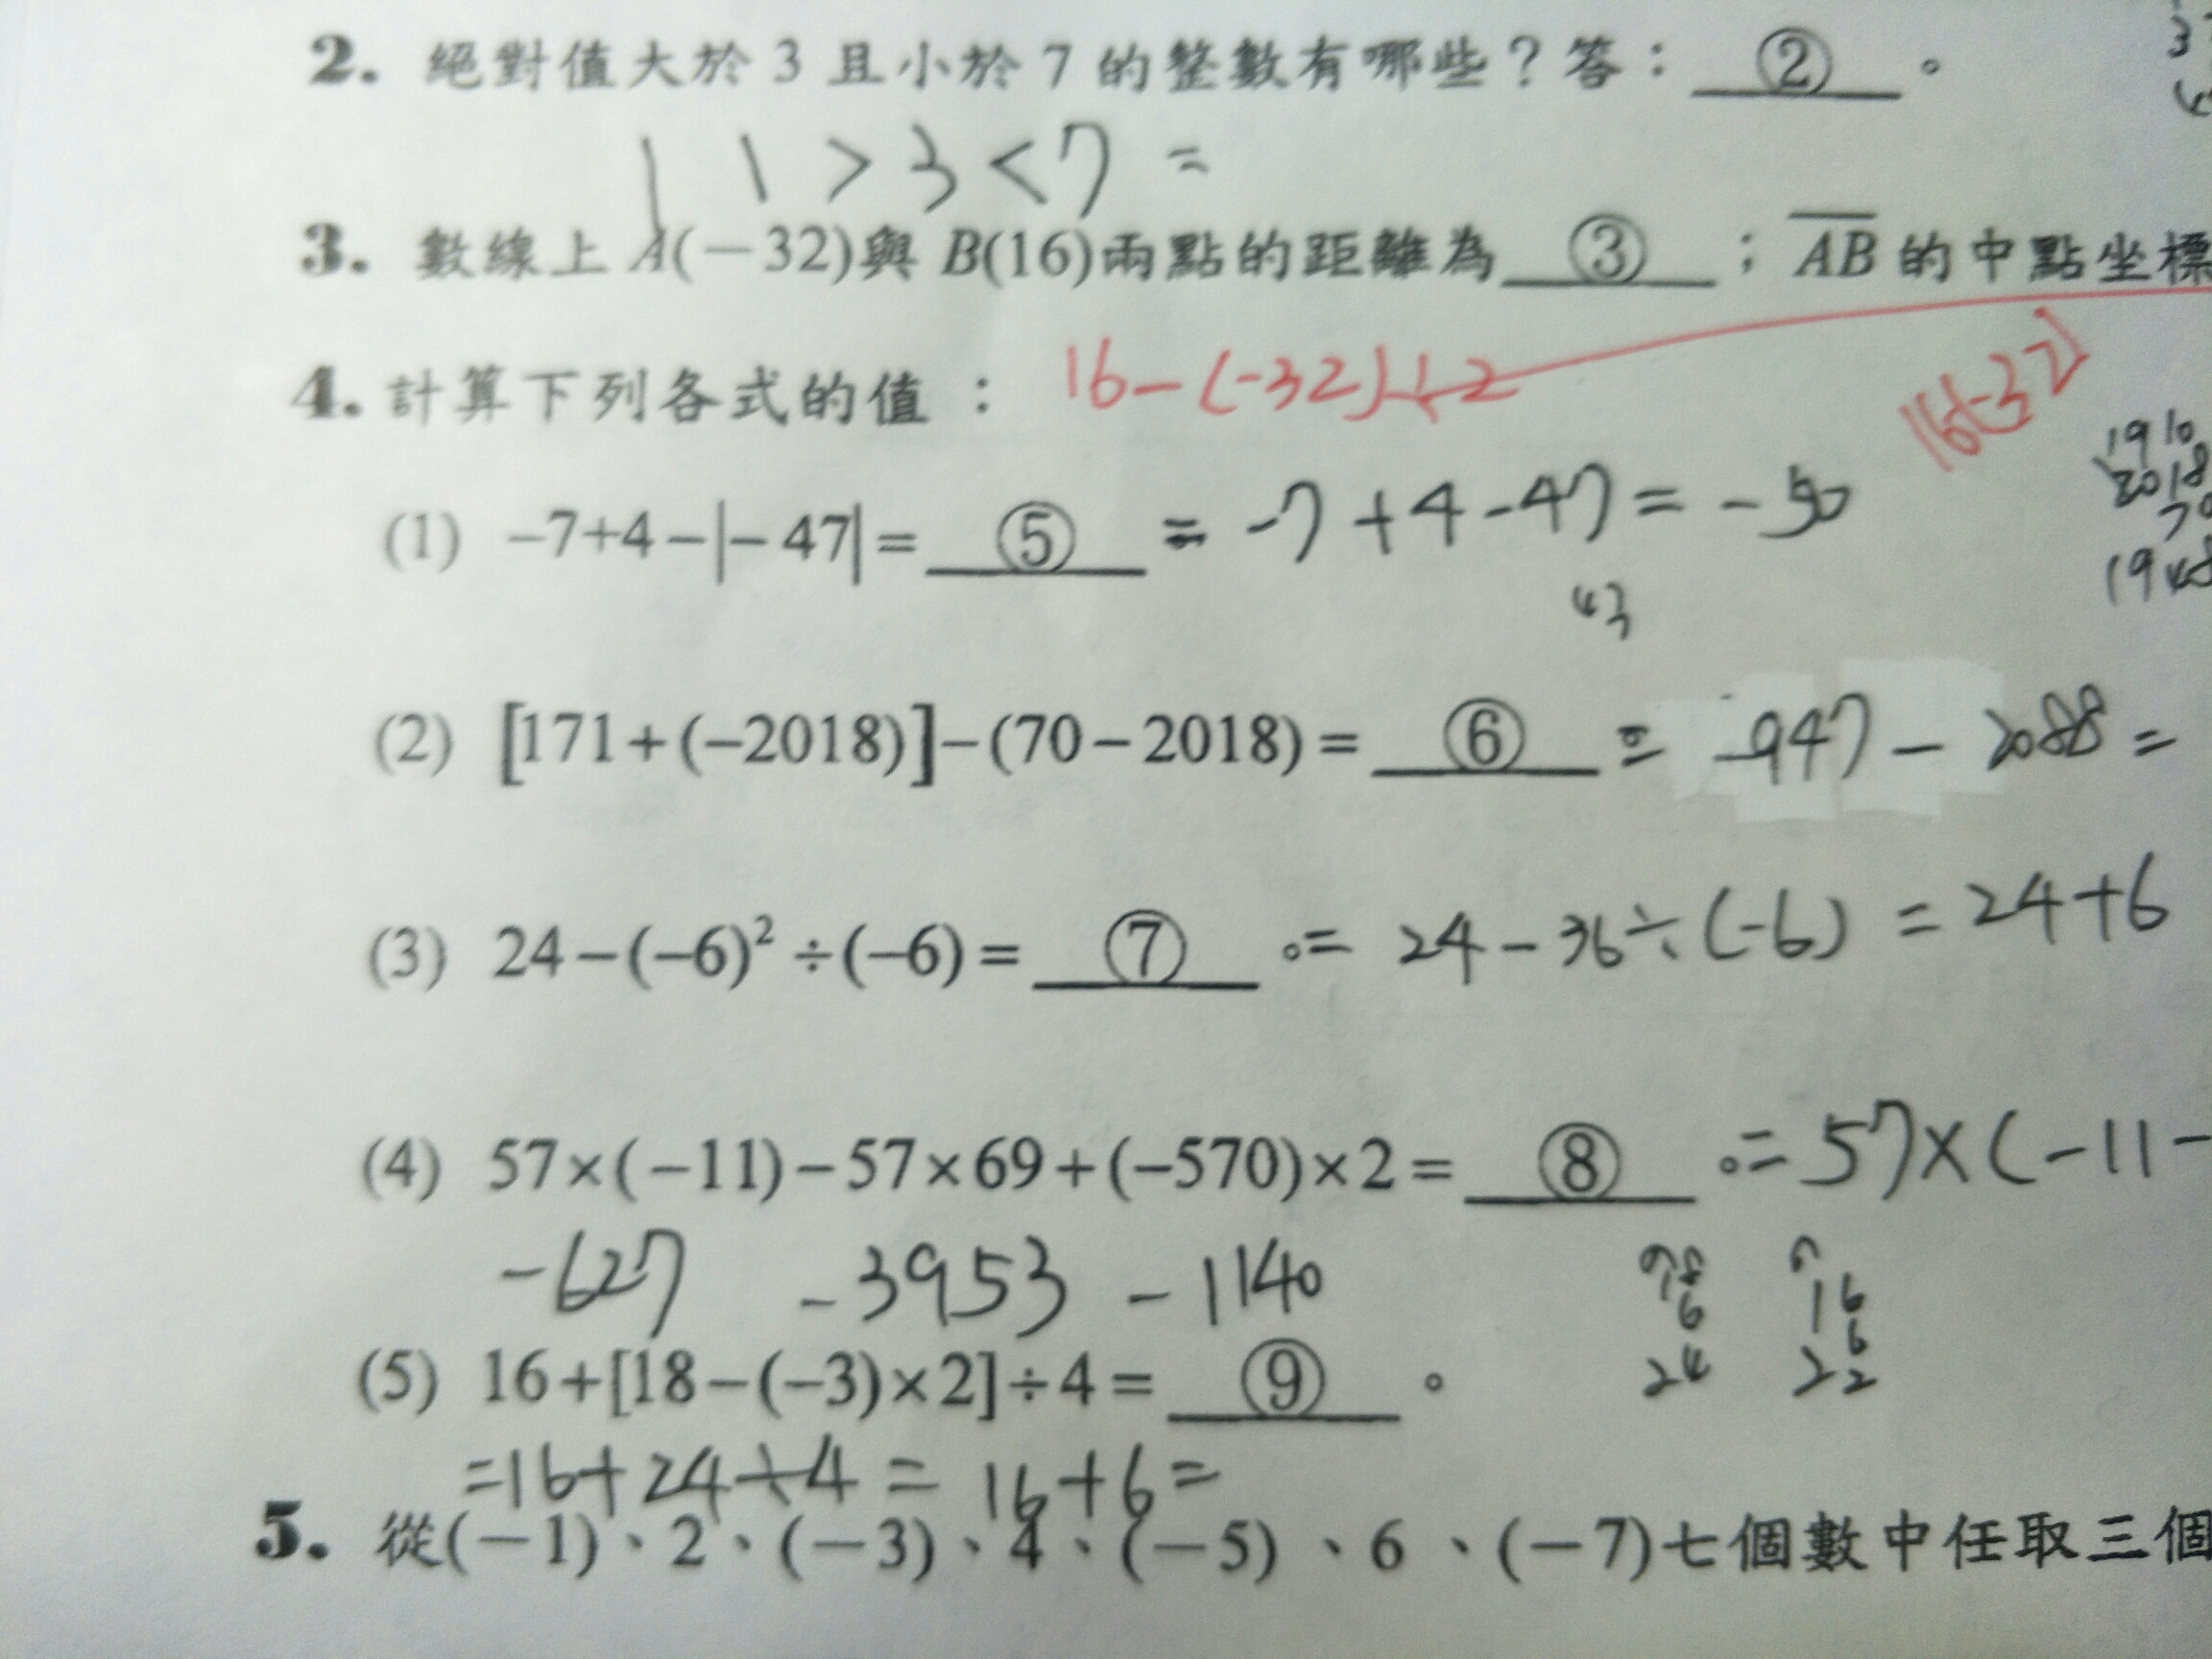 2. 絕對值大於 3 且小於 7 的整數有哪些？答：②。
| | > 3 < 7 =
3. 數線上 A(－32)與 B(16)兩點的距離為 ③ ；AB 的中點坐標
16-(-32)÷2
16-32
4. 計算下列各式的值：
1910
2018
70
1948
(1) −7+4−|−47|= ⑤ = -7+4-47=-50
43
(2) [171+(−2018)]−(70−2018)= ⑥ = -947-2088=
(3) 24−(−6)²÷(−6)= ⑦ 。= 24-36÷(-6)=24+6
(4) 57×(−11)−57×69+(−570)×2= ⑧ 。= 57×(-11-
-627 -3953 -1140
18
6
24
16
6
22
(5) 16+[18−(−3)×2]÷4= ⑨ 。
=16+24÷4=16+6=
5. 從(－1)、2、(－3)、4、(－5)、6、(－7)七個數中任取三個